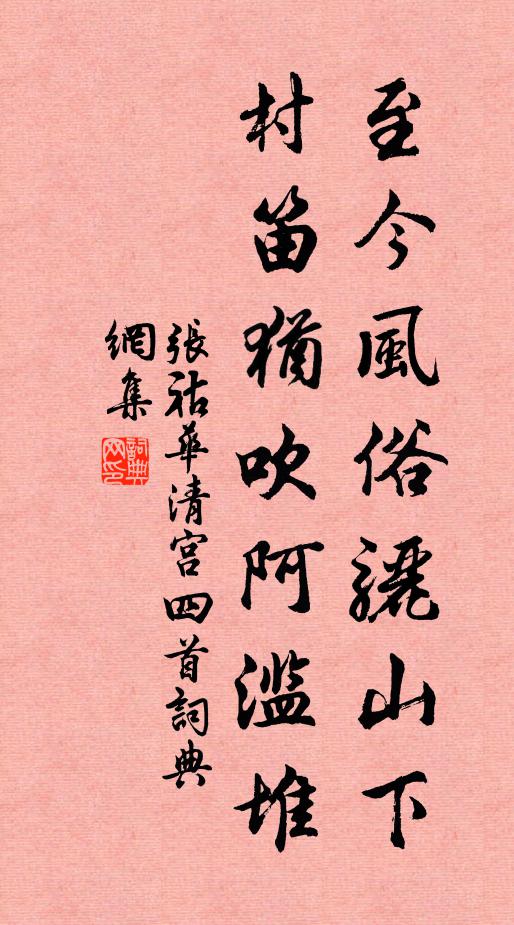 至今風俗驪山下
村笛猶吹阿濫堆
張祜華清宮四首詞典
網集
詞典
网印